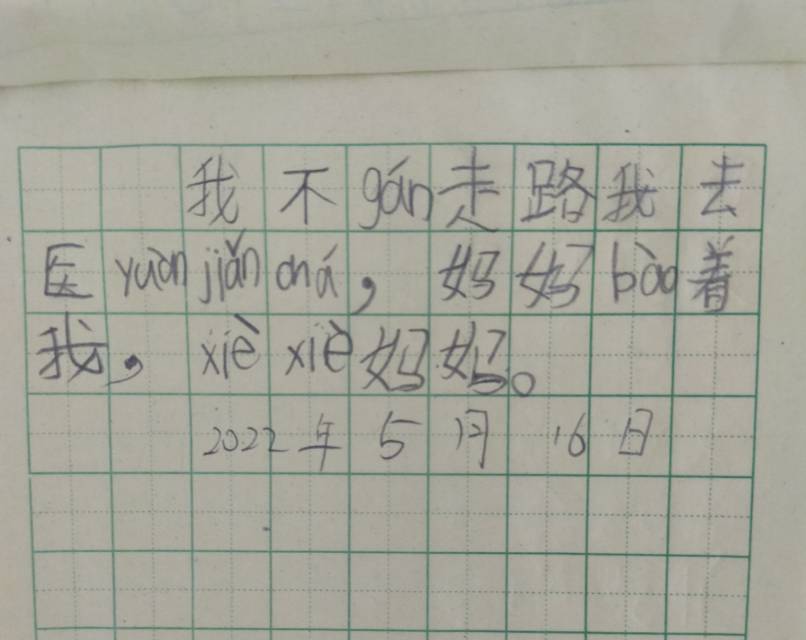 我不gán走路我去
医yuàn jiǎn chá，妈妈bào着
我，xiè xiè妈妈。
2022年5月16日